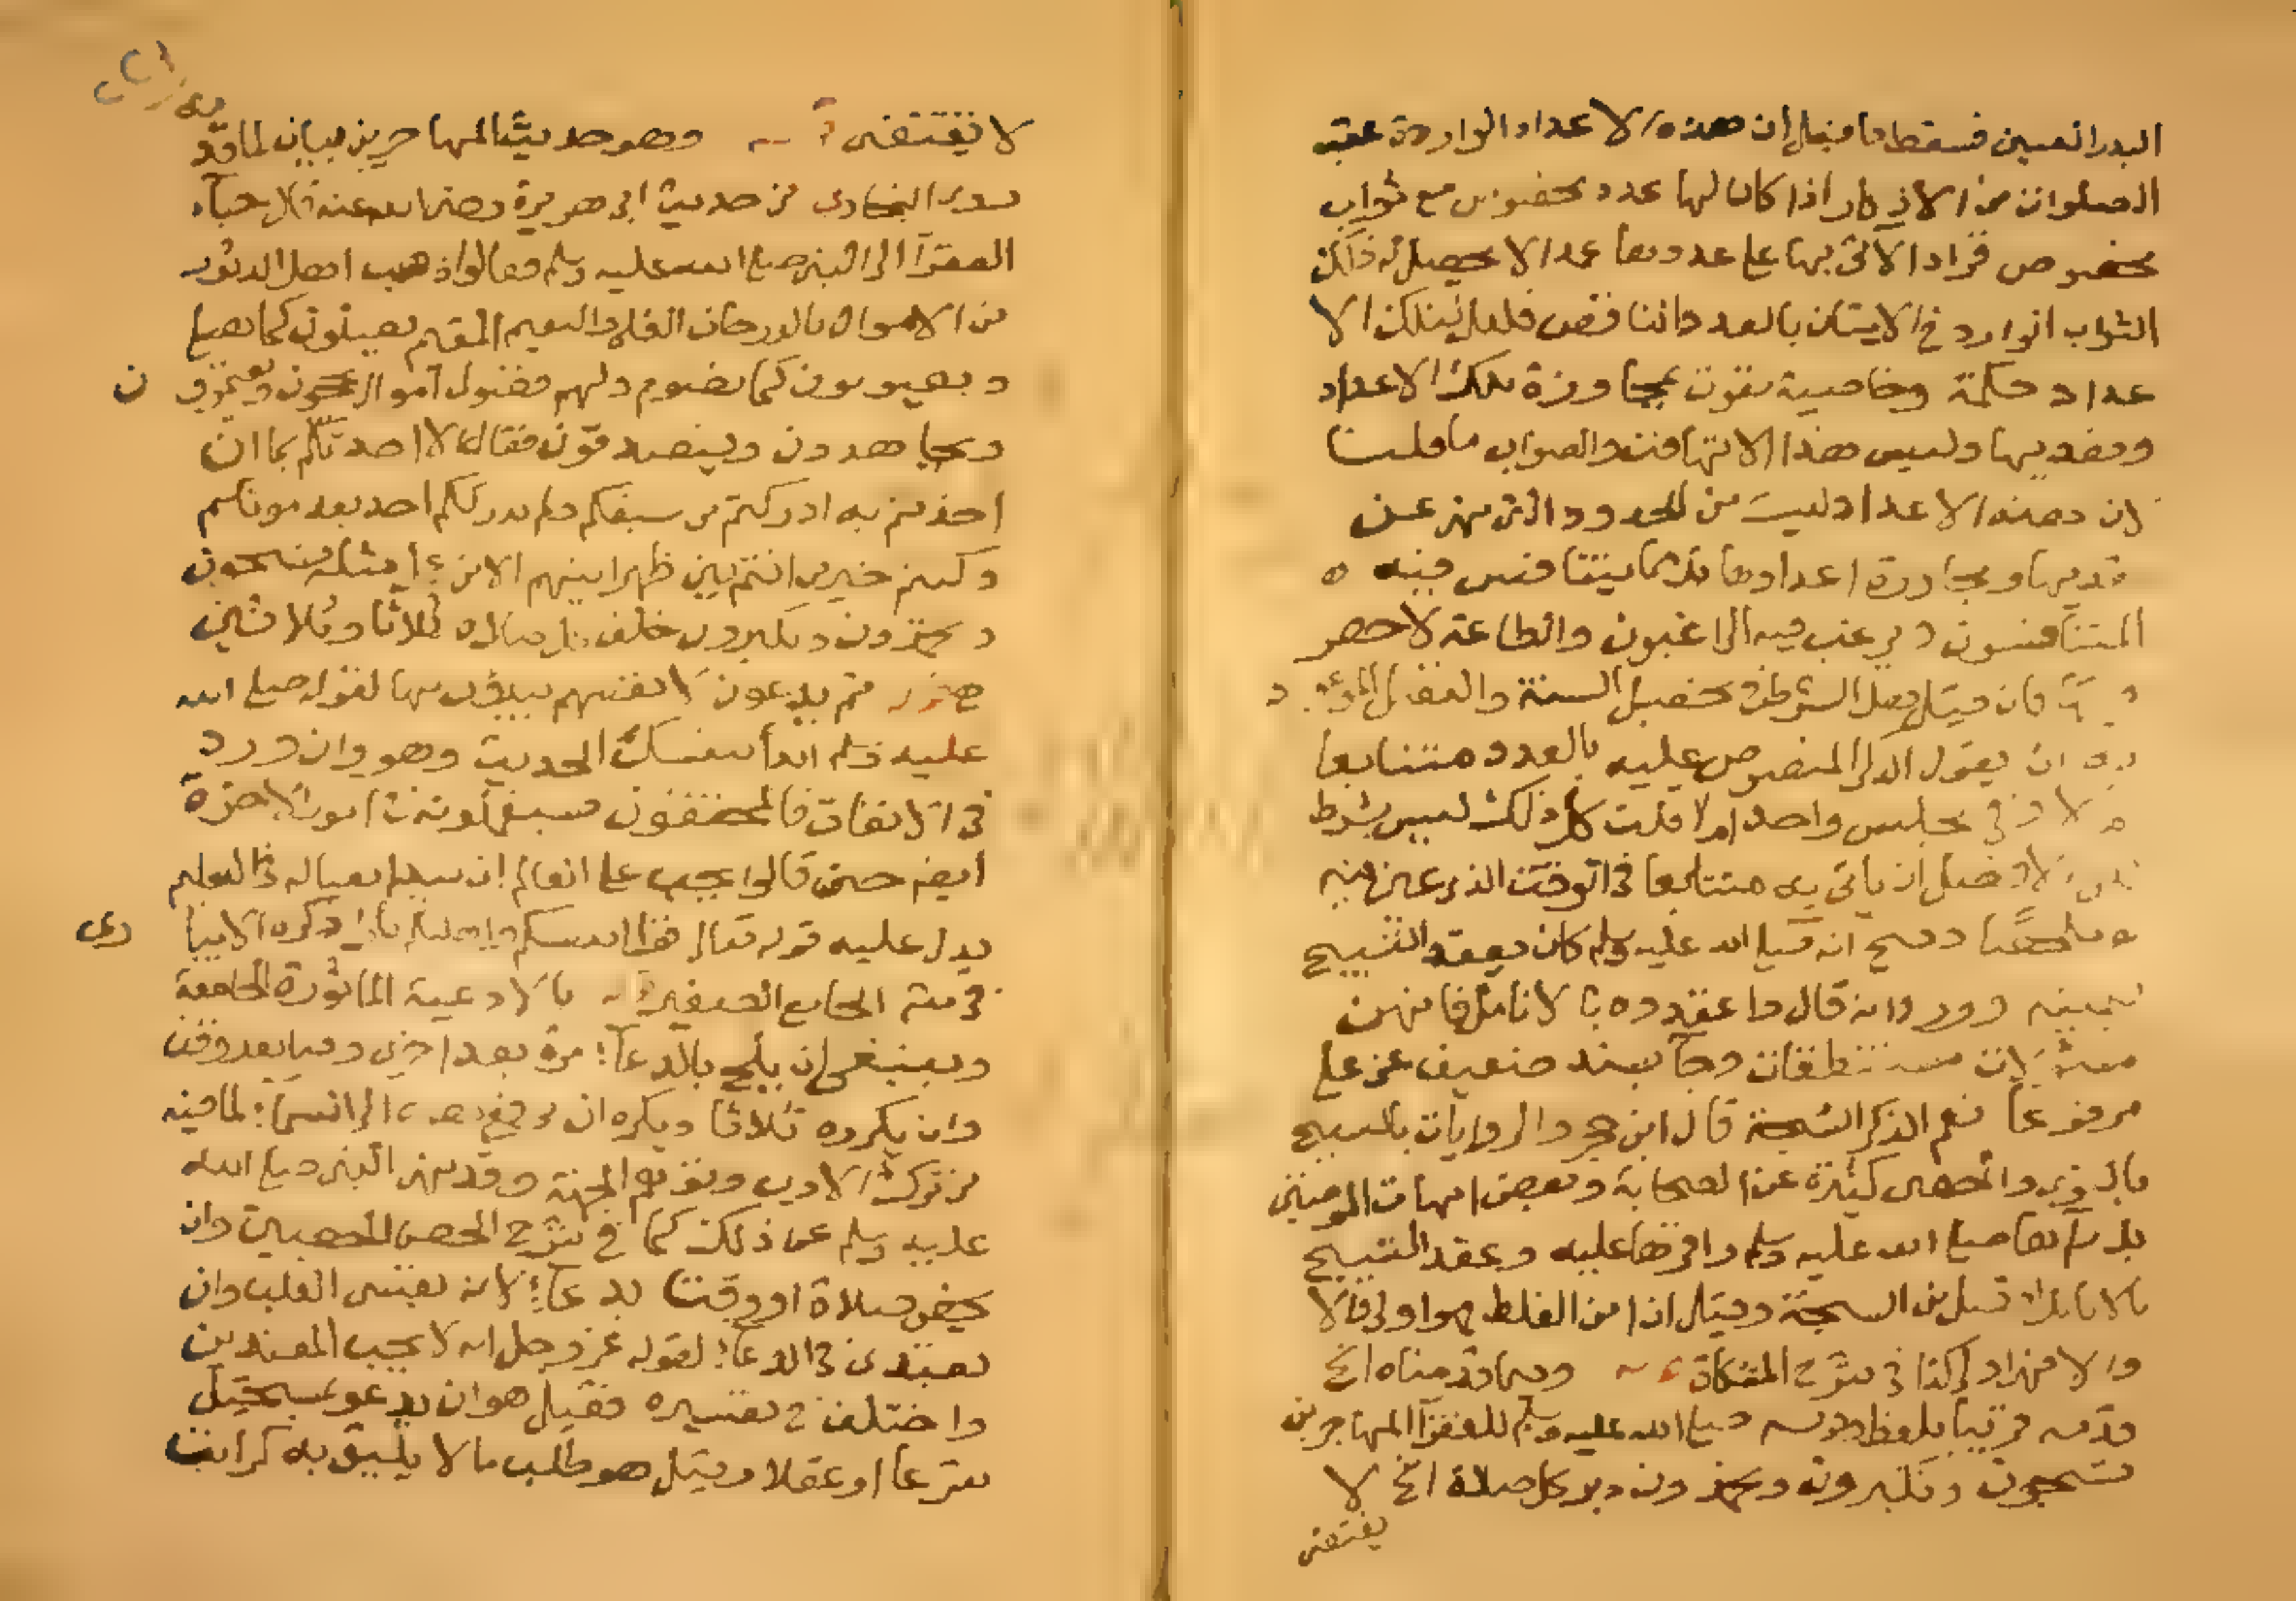 البدر العيني فسقط ما قيل ان هذه الاعداد الواردة عقب
الصلوات من الاذكار اذا كان لها عدد مخصوص مع ثواب
مخصوص فزاد الآتى بها على عددها عمدا لا يحصل له ذلك
الثواب الوارد في الاتيان بالعدد الناقص فلعل لتلك الا
عداد حكمة وخاصية تفوت بمجاوزة تلك الاعداد
وتعديها وليس هذا الا تهافت والصواب ما قلنا
لان هذه الاعداد ليست من الحدود التى نهى عن
تعديها ومجاوزة اعدادها بل مما يتنافس فيه
المتنافسون ويرغب فيه الراغبون والطاعة لا حصر
فان قيل هل الشرط في تحصيل السنة والفضل الموعود
به ان يقول الذكر المنصوص عليه بالعدد متتابعا
ام لا وفى مجلس واحد ام لا قلت كل ذلك ليس بشرط
لكن الافضل ان ياتى به متتابعا فى الوقت الذى عين فيه
وصح انه صلى الله عليه وسلم كان يعقد التسبيح
بيمينه وورد انه قال واعقدوه بالانامل فانهن
مسئولات مستنطقات وجآ بسند ضعيف عن على
مرفوعا نعم الذكر السبحة قال ابن حجر والروايات بالتسبيح
بالنوى والحصى كثيرة عن الصحابة وبعض امهات المومنين
بل رآها صلى الله عليه وسلم واقرها عليه وعقد التسبيح
بالانامل افضل من السبحة وقيل ان امن الغلط فهو اولى والا
والا فهى اولى كذا فى شرح المشكاة وبما قدمناه الخ
قدمه قريبا بلفظ قوله صلى الله عليه وسلم للفقرآ المهاجرين
تسبحون وتكبرون وتحمدون دبر كل صلاة الخ لا
يقتضى
لا يقتضى وهو حديث المهاجرين بيان لما قد
روى البخارى من حديث ابى هريرة رضى الله عنه قال جآء
الفقرآ الى النبى صلى الله عليه وسلم فقالوا ذهب اهل الدثور
من الاموال بالدرجات العلا والنعيم المقيم يصلون كما نصلى
ويصومون كما نصوم ولهم فضول اموال يحجون ويعتمرون
ويجاهدون ويتصدقون فقال الا احدثكم بما ان
اخذتم به ادركتم من سبقكم ولم يدرككم احد بعدكم
وكنتم خير من انتم بين ظهرانيهم الا من عمل مثله تسبحون
وتحمدون وتكبرون خلف كل صلاة ثلاثا وثلاثين
ثم يدعون لانفسهم يبدؤن بها لقوله صلى الله
عليه وسلم ابدأ بنفسك الحديث وهو وان ورد
فى النفقات فالمحققون يستعملونه في امور الاخرة
ايضا حتى قالوا يجب على العالم ان يبدا بعياله في التعليم
يدل عليه قوله تعالى قوا انفسكم واهليكم نارا ذكره
فى شرح الجامع الصغير بالادعية الماثورة الجامعة
وينبغى ان يلح بالدعآء مرة بعد اخرى
وان يكرره ثلاثا ويكره ان يرفع بصره الى السمآء لما فيه
من ترك الادب وتوهم الجهة وقد نهى النبى صلى الله
عليه وسلم عن ذلك كما في شرح الحصن الحصين وان
يخص صلاة او وقتا بدعآء لانه يقسى القلب وان
يعتدى فى الدعآء لقوله عز وجل انه لا يحب المعتدين
واختلف في تفسيره فقيل هو ان يدعو بمستحيل
شرعا او عقلا وقيل هو طلب ما لا يليق به كمراتب